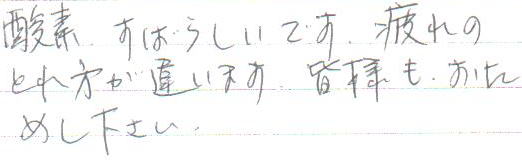 酸素、すばらしいです。疲れの
とれ方が違います。皆様も、おた
めし下さい。